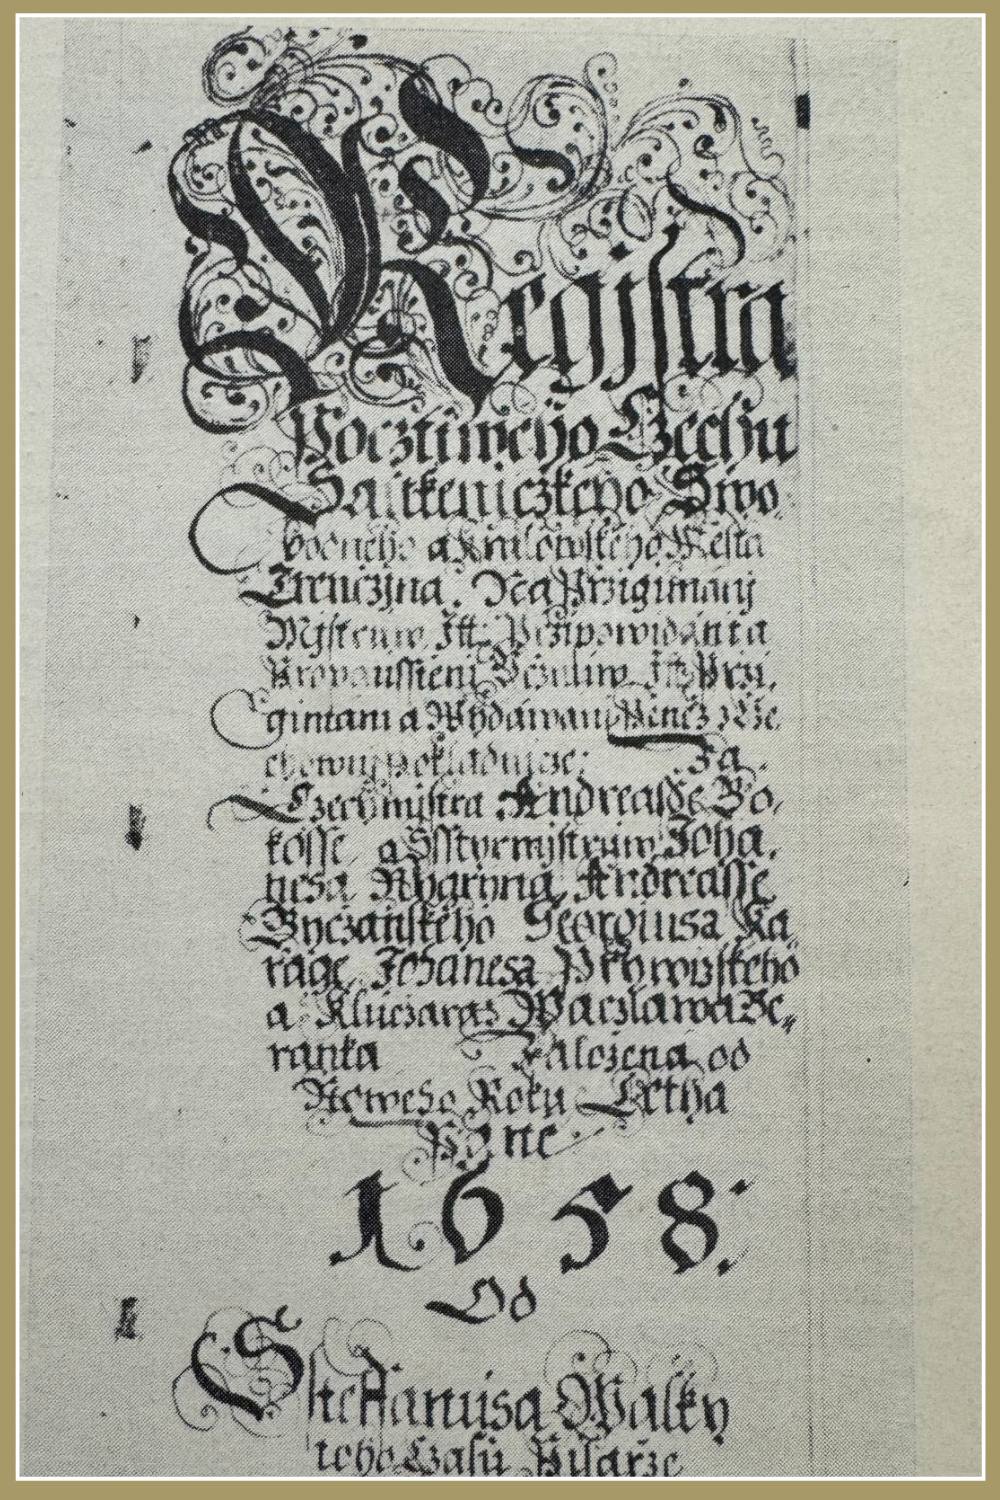 Regjstra
Pocztiweho Czechu
Saukeniczkeho Swo,
bodneho a Kralowskeho Mesta
Trenczjna. Na Przigimanij
Mjstruw. Itt. Przipowidani a
Propaussteni Uczuliw. Itt Przi,
gimani a Wydawani Penez z Cze,
chowni Pokladnicze: Za
Czechmjstra Andreasse Bo,
kosse, a Sstyrmjstruw Joha,
nesa Andreasse
Byczanskeho Georgiusa Ka,
rage, Johanesa
a Kluczaraz Waczlawa Be,,
ranka Zalozena od
Noweho Roku Letha
Pane
1658:
Od
Steffanusa Walky
toho Czasu Pisarze